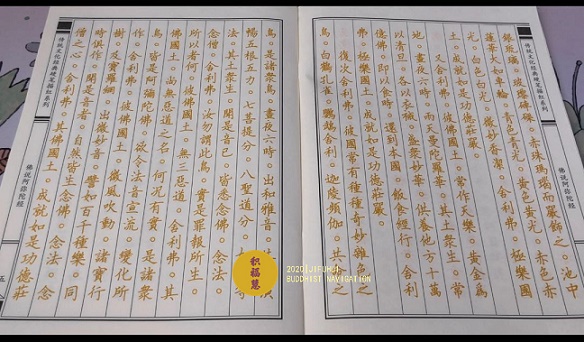 传统文化经典硬笔描红系列
佛说阿弥陀经
銀琉璃。玻璃硨磲。赤珠瑪瑙而嚴飾之。池中
蓮華大如車輪。青色青光。黃色黃光。赤色赤
光。白色白光。微妙香潔。舍利弗。極樂國
土。成就如是功德莊嚴。
又舍利弗。彼佛國土。常作天樂。黃金為
地。晝夜六時。而雨天曼陀羅華。其土眾生。常
以清旦。各以衣祴。盛眾妙華。供養他方十萬
億佛。即以食時。還到本國。飯食經行。舍利
弗。極樂國土。成就如是功德莊嚴。
復次舍利弗。彼國常有種種奇妙雜色之
鳥。白鶴孔雀。鸚鵡舍利。迦陵頻伽。共命之
鳥。是諸眾鳥。晝夜六時。出和雅音。
暢五根五力。七菩提分。八聖道分。
法。其土眾生。聞是音已。皆悉念佛。念法。
念僧。舍利弗。汝勿謂此鳥。實是罪報所生。
所以者何。彼佛國土。無三惡道。舍利弗。其
佛國土。尚無惡道之名。何況有實。是諸眾
鳥。皆是阿彌陀佛。欲令法音宣流。變化所
作。舍利弗。彼佛國土。微風吹動。諸寶行
樹。及寶羅網。出微妙音。譬如百千種樂。同
時俱作。聞是音者。自然皆生念佛。念法。念
僧之心。舍利弗。其佛國土。成就如是功德莊
传统文化经典硬笔描红系列
佛说阿弥陀经
五
积福慧
2020|JIFUHUI
BUDDHIST NAVIGATION